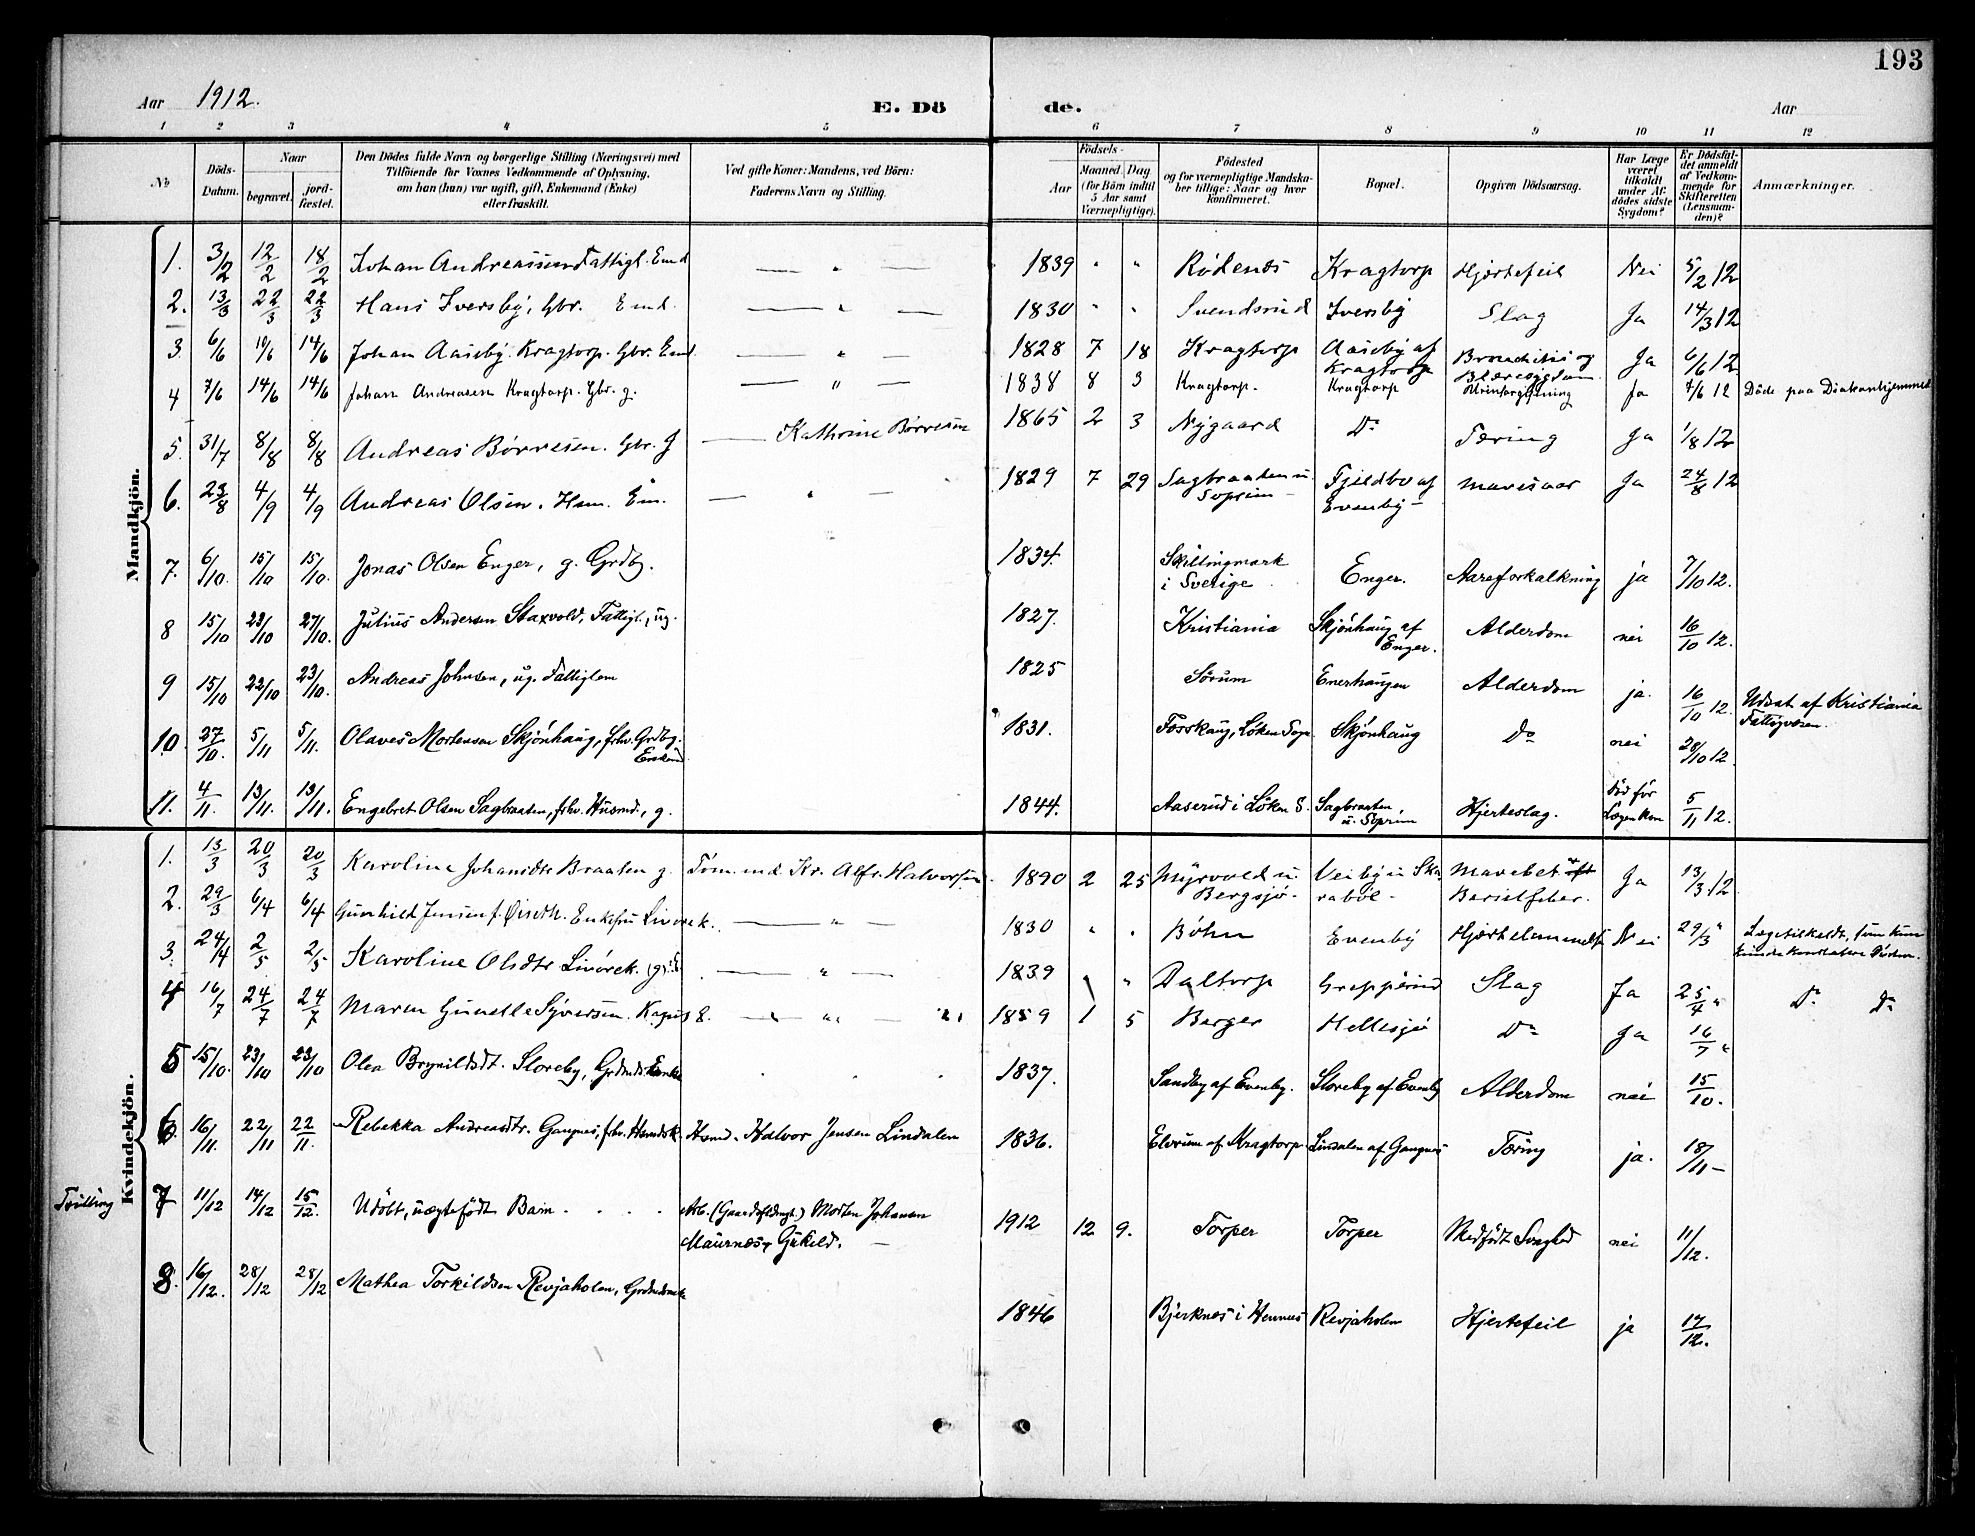 193
Aar 1912. E. Dö de. Aar
1 2 3 4 5 6 7 8 9 10 11 12
No
Döds-Datum.
Naar begravet. jord-fæstet.
Den Dödes fulde Navn og borgerlige Stilling (Næringsvei) med Tilföiende for Voxnes Vedkommende af Oplysning, om han (hun) var ugift, gift, Enkemand (Enke) eller fraskilt.
Ved gifte Koner: Mandens, ved Börn: Faderens Navn og Stilling.
Födsels- Aar Maaned Dag (for Börn indtil 5 Aar samt Værnepligtige).
Födested og for værnepligtige Mandskaber tillige: Naar og hvor konfirmeret.
Bopæl.
Opgiven Dödsaarsag.
Har Læge været tilkaldt under Afdödes sidste Sygdom?
Er Dödsfaldet anmeldt af Vedkommende for Skifteretten (Lensmanden)?
Anmærkninger.
Mandkjön.
1. 3/2 12/2 18/2 Johan Andreassen Fattigl. Emd — " — 1839 " " Rödenes Kragtorp Hjertefeil Nei 5/2 12
2. 13/3 22/3 22/3 Hans Iversby, Gbr. Emd. — " — 1830 " " Svendsrud Iversby Slag Ja 14/3 12
3. 6/6 10/6 14/6 Johan Aaseby. Kragtorp. Gbr. Emd. — " — 1828 7 18 Kragtorp Aaseby af Kragtorp Bronchitis og Blæresygdom Ja 6/6 12
4 7/6 14/6 14/6 Johan Andreasen Kragtorp. Gbr. g. — " — 1838 8 3 Kragtorp. Kragtorp Urinforgiftning Ja 7/6 12 Döde paa Diakonhjemmet
5. 31/7 8/8 8/8 Andreas Börresen. Gbr. G — Kathrine Börresen 1865 2 3 Nygaard Do Tæring Ja 1/8 12
6. 23/8 4/9 4/9 Andreas Olsen. Hsm. Em. — " — 1829 7 29 Sagbraaten u. Soprim Fjeldbo af Evenby Mavesaar Ja 24/8 12
7. 6/10. 15/10 15/10. Jonas Olsen Enger, g. Grdbr. 1834. Skillingmark i Sverige Enger. Aareforkalkning ja 7/10 12.
8 15/10 23/10 27/10. Julius Andersen Staxvold, Fattigl., ug. 1827. Kristiania Skjönhaug af Enger. Alderdom nei 16/10 12.
9 15/10 22/10 23/10. Andreas Johnsen, ug. Fattiglem 1825 Sörum Enerhaugen Alderdom ja. 16/10 12. Udsat af Kristiania Fattigvæsen.
10. 27/10. 5/11 5/11. Olaves Mortensen Skjönhaug, frhv. Grdbg. Enkem 1831. Fosshaug, Löken Sogn Skjönhaug Do nei 28/10 12.
11. 4/11. 13/11. 13/11. Engebret Olsen Sagbraaten, frhv. Husmd., g. 1844. Aaserud i Löken S. Sagbraaten, u. Soprim Hjerteslag. Död för Lægen kom 5/11 12.
Kvindekjön.
1. 13/3 20/3 20/3 Karoline Johansdtr Braaten g. Töm. md. Kr. Alfr. Halvorsen. 1890 2 25 Myrvold u. Bergsjö. Veiby u. Skaraböl. Barselfeber. Ja 13/3 12
2. 29/3 6/4 6/4 Gunhild Jensen f. Enkefru Livörek. — " — 1830 " " Böhn Evenby Hjertelammelse Nei 29/3 "
3. 24/4 2/5 2/5 Karoline Olsdtr Livörek. (g) — " — 1839 " Daltorp Grepperud Slag Ja 25/4 "
4 16/7 24/7 24/7 Maren Gunelle Syversen. — " — 1859 1 5 Berger Hellesjö Do Ja 16/7 " Do Do
5 15/10. 23/10 23/10 Olea Brynildsdt. Storeby, Grdmdsenke 1837. Sandby af Evenby. Storeby af Evenby Alderdom nei 15/10.
6. 16/11. 22/11 22/11. Rebekka Andreasdtr. Gangnes, frhv. Hsmdsk. Hsmd. Halvor Jensen Lindalen 1836. Elvrum af Kragtorp. Lindalen af Gangnes Tæring ja. 18/11
Tvilling 7 11/12 14/12 15/12. Udöbt, uægtefödt Barn Arb. Morten Johansen 1912 12 9. Torper Torper Medfödt Svaghed nei 11/12.
8. 16/12. 28/12 28/12 Mathea Torkildsen Revjaholen, 1846 Bjerknes i Hemnes Revjaholen Hjertefeil ja 17/12.